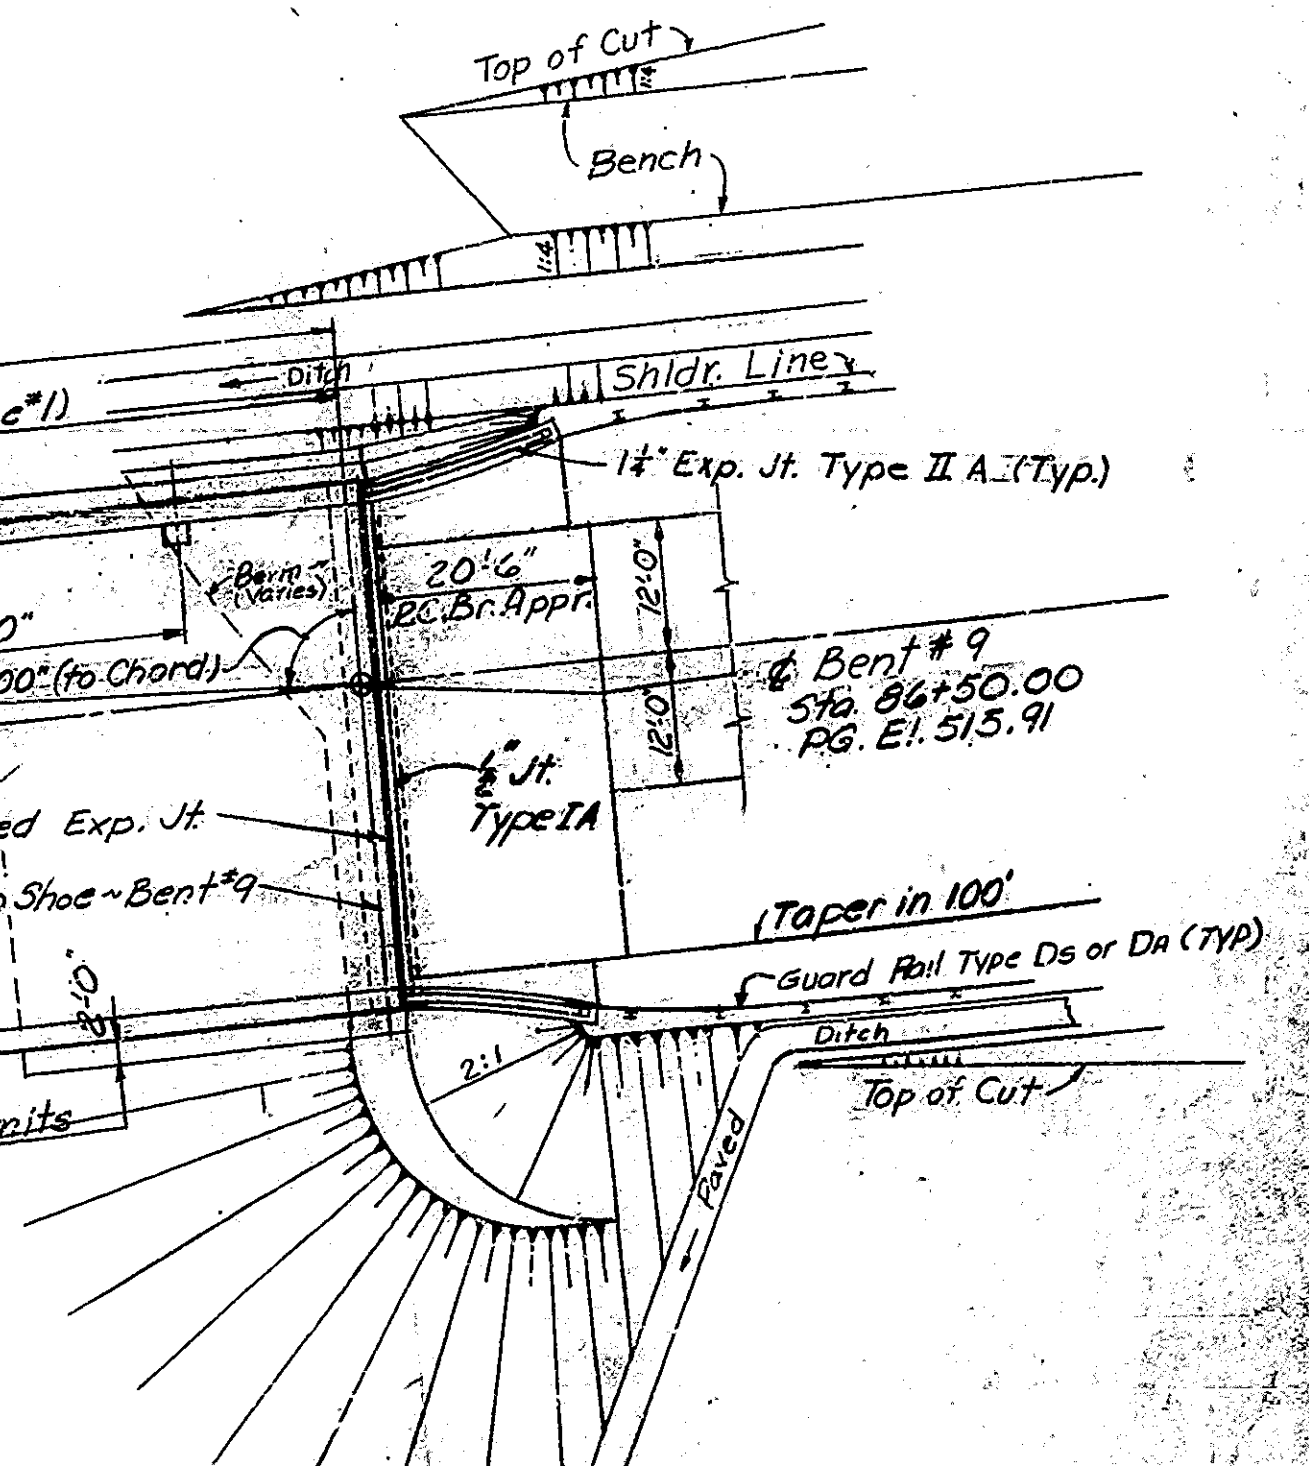 Top of Cut
1:4
Bench
1:4
Ditch
Shldr. Line
c#1)
1¼" Exp. Jt. Type II A (Typ.)
Berm
(Varies)
20'-6"
R.C. Br. Appr.
12'-0"
0"
00" (to Chord.)
℄ Bent #9
Sta. 86+50.00
P.G. El. 515.91
12'-0"
" Jt.
Type IA
ed Exp. Jt.
Shoe ~ Bent #9
Taper in 100'
Guard Rail Type Ds or DA (Typ)
2'-0"
Ditch
2:1
Top of Cut
mits
Paved